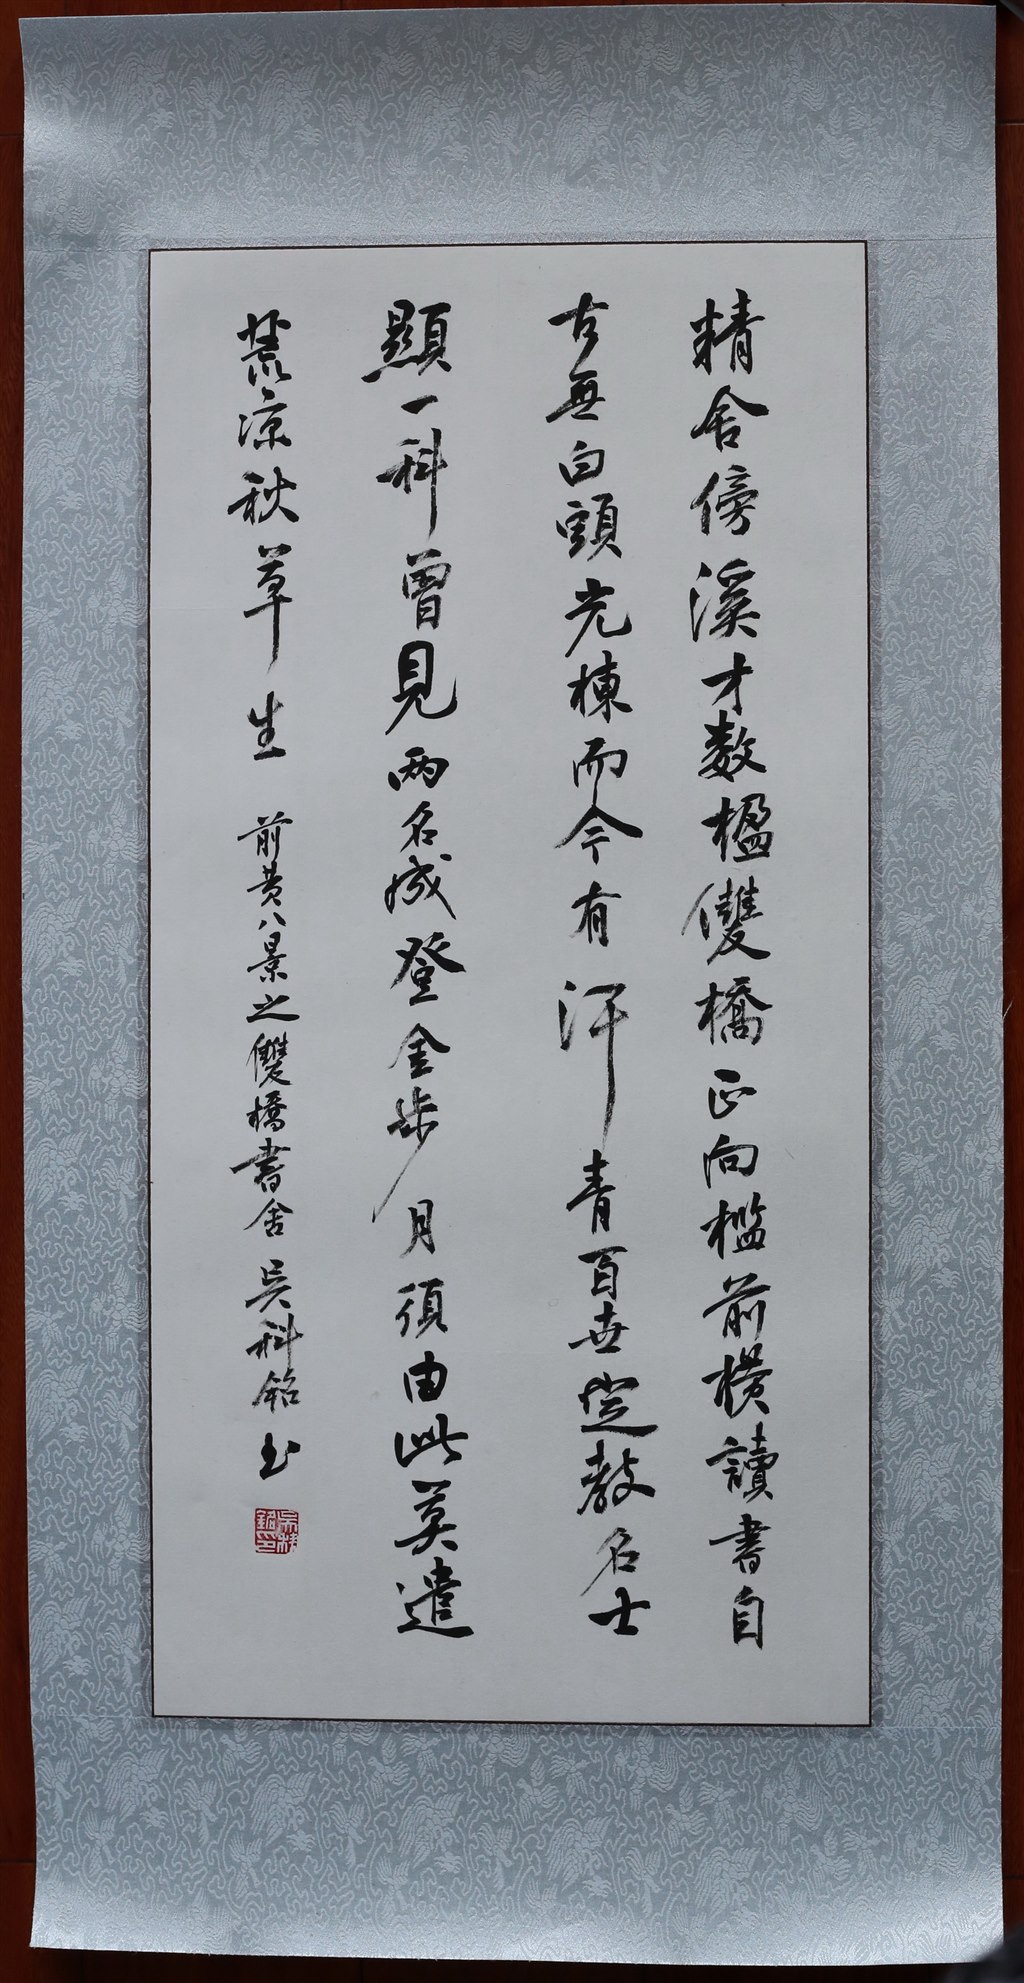 精舍傍溪才数楹雙橋正向檻前橫讀書自
古無白頭充棟而今有汗青百世定教名士
顯一科曾見兩名成登金步月須由此莫遣
荒凉秋草生
前黄八景之雙橋書舍 吴科銘书